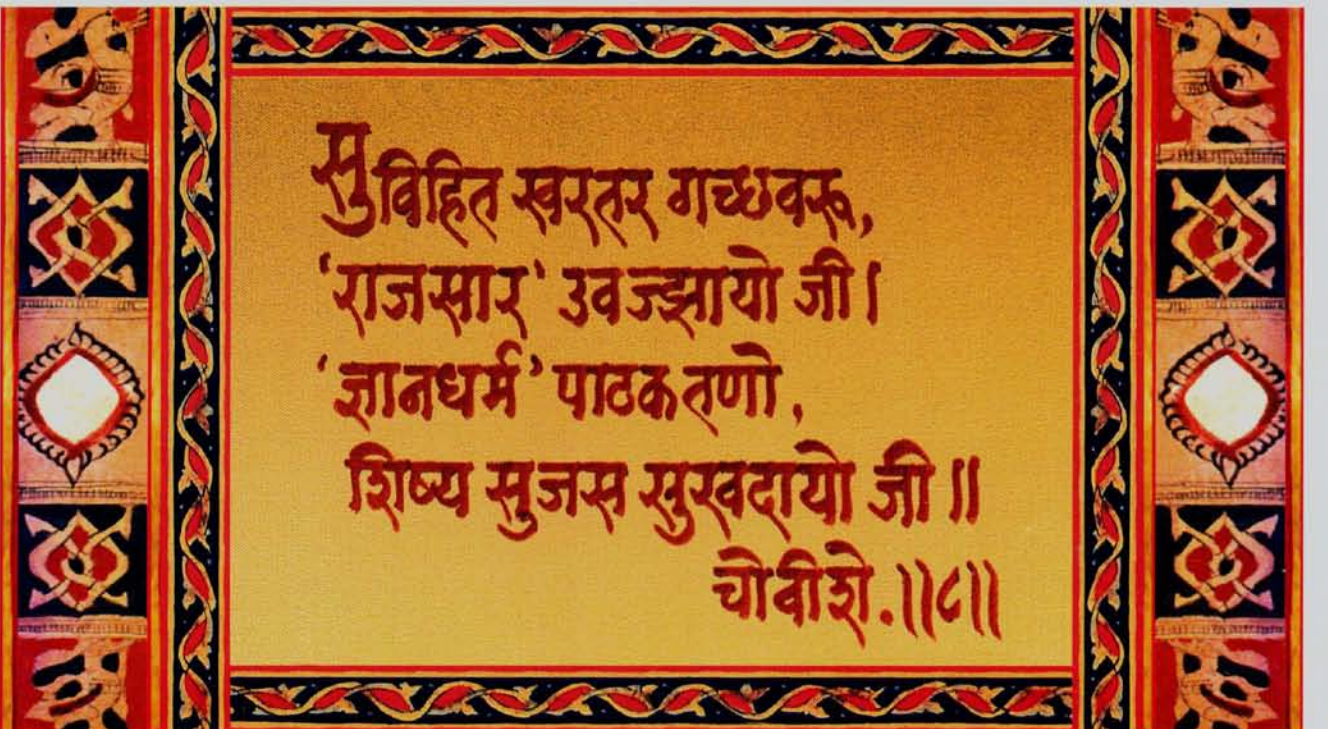 सुविहित खरतर गच्छवरू,
‘राजसार’ उवज्झायो जी।
‘ज्ञानधर्म’ पाठक तणो,
शिष्य सुजस सुखदायो जी॥
चोवीशे.॥८॥